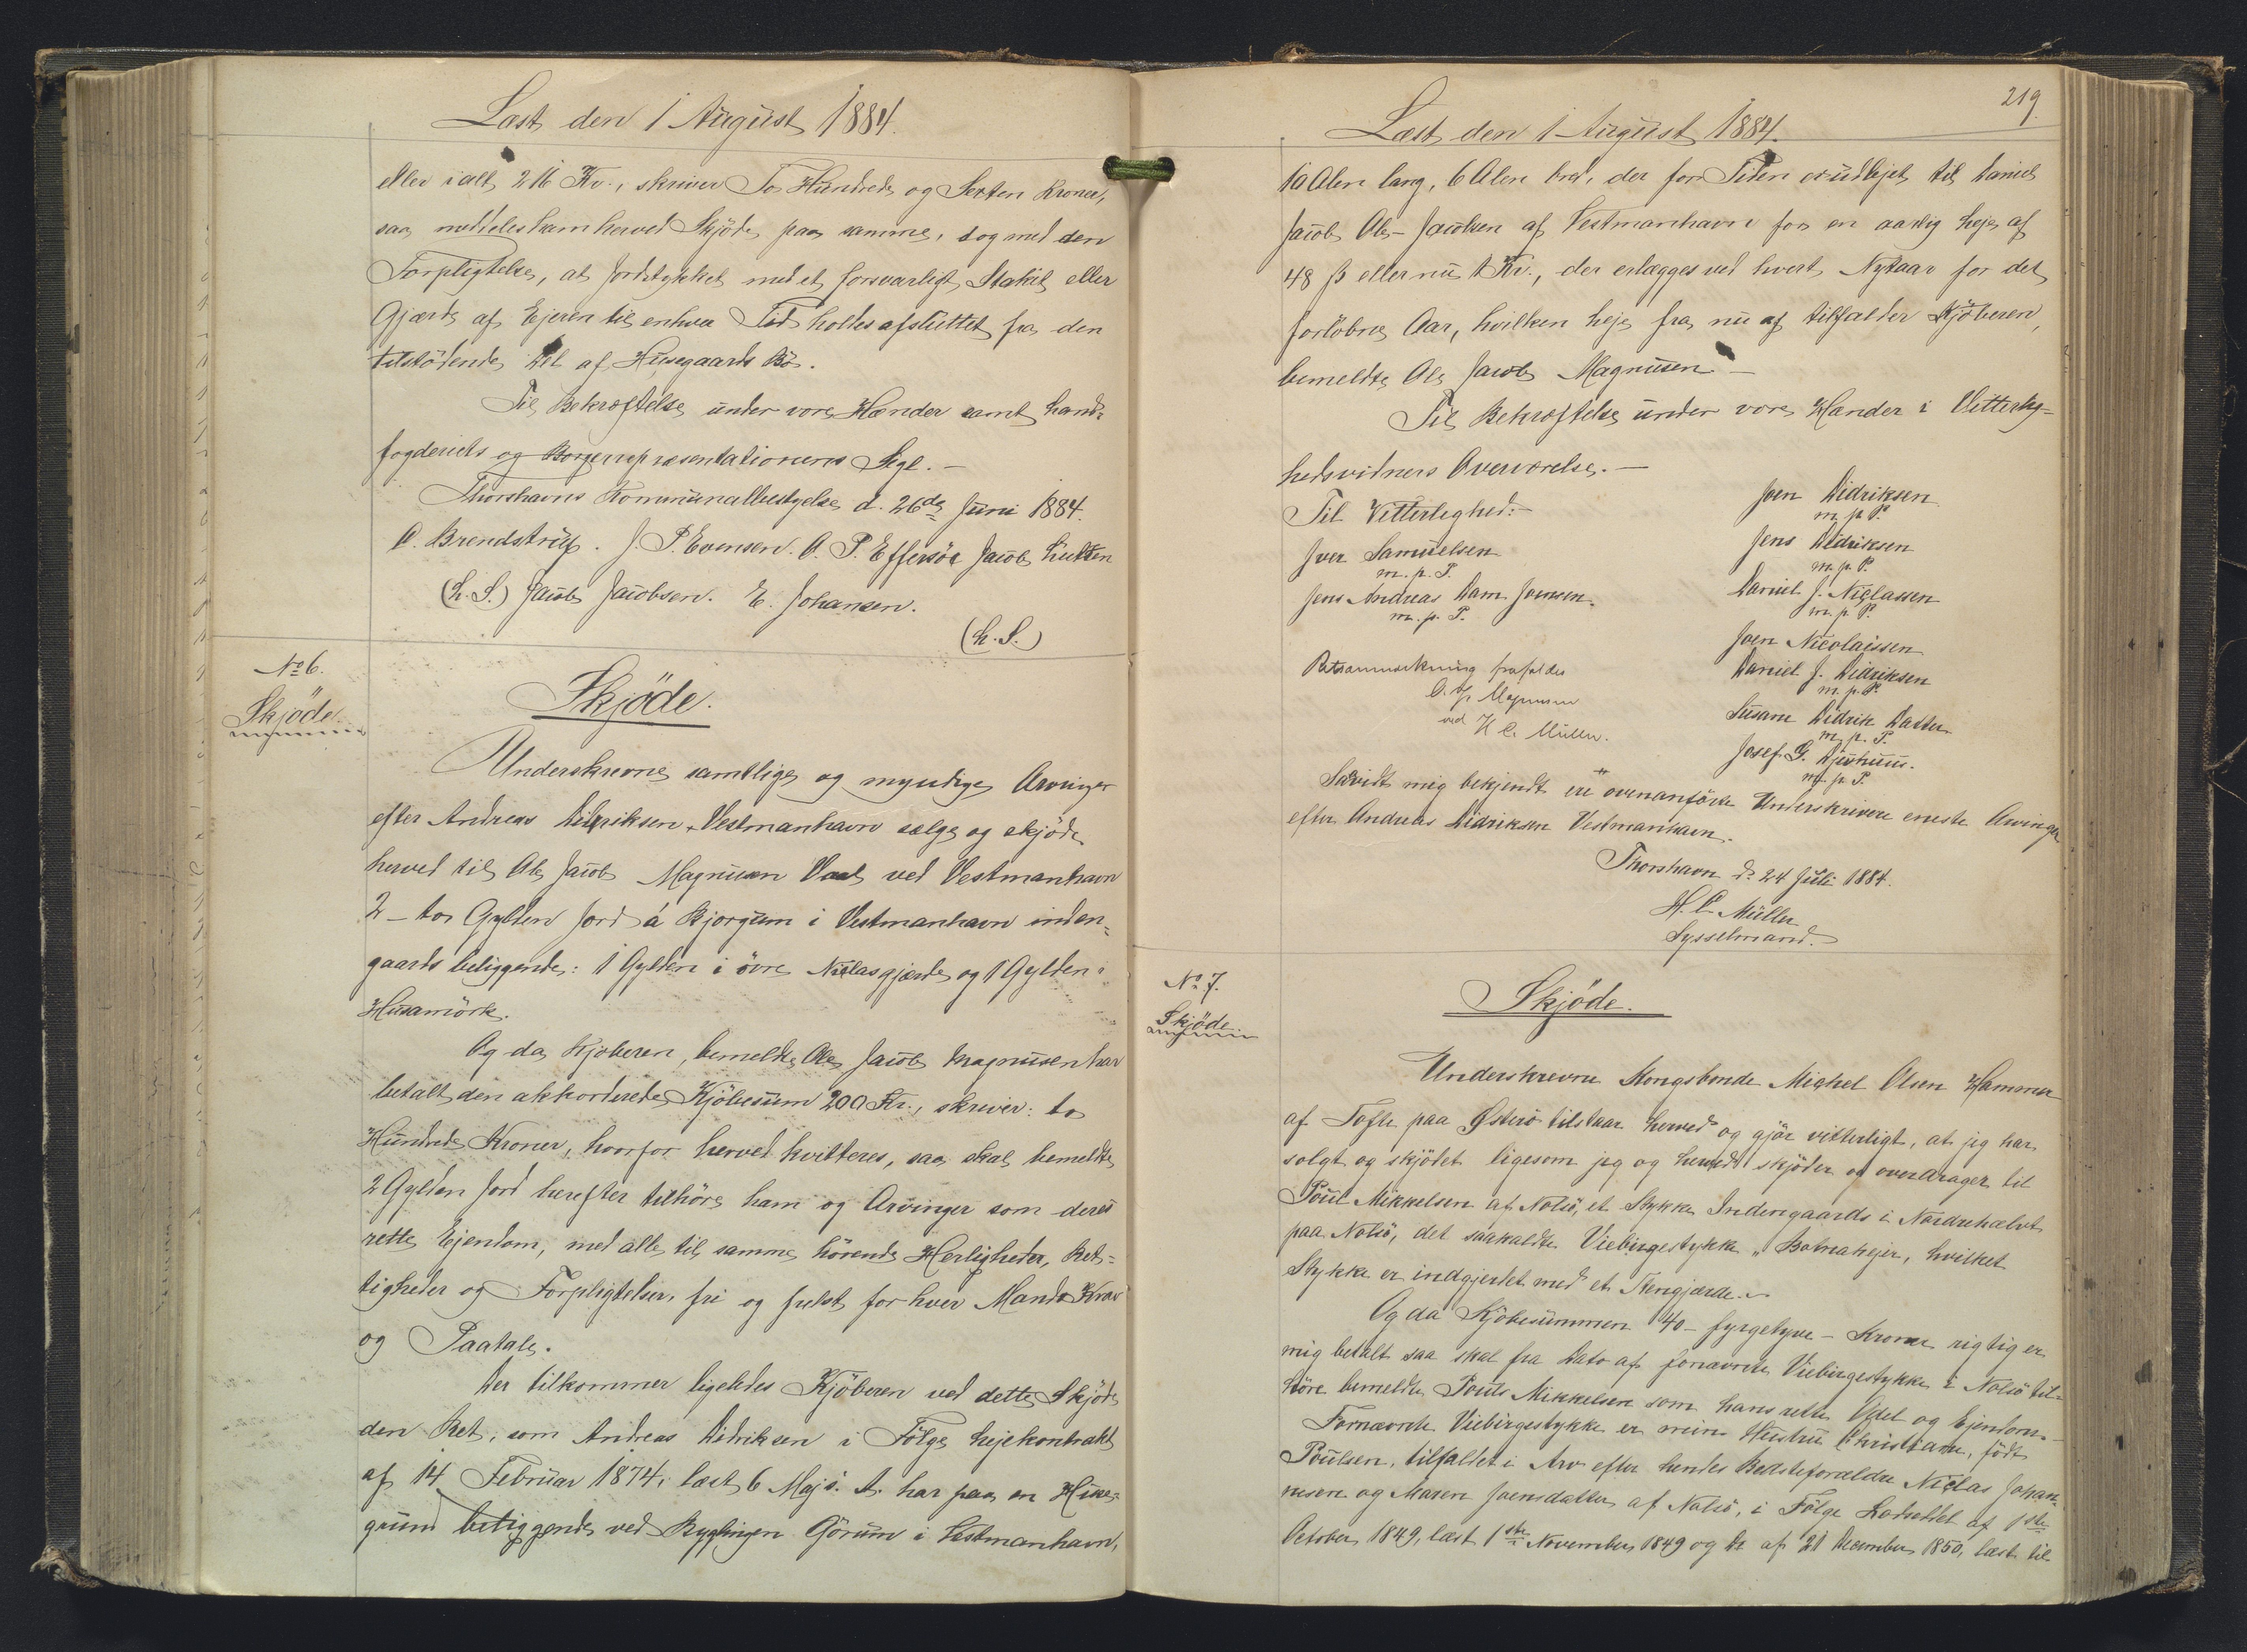 Læst den 1 August 1884.
eller ialt 216 Kr., skriver To Hundrede og Sexten Kroner,
saa meddeles ham herved Skjöde paa samme, dog med den
Forpligtelse, at Jordstykket med et forsvarligt Stakit eller
Gjærde af Ejeren til enhver Tid holdes afsluttet fra den
tilstödende Del af Husegaards Bö.
Til Bekræftelse under vore Hænder samt Land-
fogderiets og Borgerrepræsentationens Segl. —
Thorshavns Kommunalbestyrelse d. 26de Juni 1884.
C. Brendstrup. J. P. Evensen. O. P. Effersöe Jacob Lützen
(L. S.) Jacob Jacobsen. E. Johansen.
(L. S.)
No 6.
Skjöde.
Skjöde.
Underskrevne samtlige og myndige Arvinger
efter Andreas Didriksen Vestmanhavn sælge og skjöde
herved til Ole Jacob Magnusen Vaal ved Vestmanhavn
2 – to Gylden Jord á Bjorgum i Vestmanhavn inden-
gaards beliggende: 1 Gylden i övre Niclasgjærde og 1 Gylden i
Husamörk.
Og da Kjöberen, bemeldte Ole Jacob Magnusen har
betalt den akkorderede Kjöbesum 200 Kr., skriver: to
Hundrede Kroner, hvorfor herved kvitteres, saa skal bemeldte
2 Gylden Jord herefter tilhöre ham og Arvinger som deres
rette Ejendom, med alle til samme hörende Herligheder, Ret-
tigheder og Forpligtelser, fri og frelst for hver Mands Krav
og Paatale.
Der tilkommer ligeledes Kjöberen ved dette Skjöde
den Ret, som Andreas Didriksen i Fölge Lejekontrakt
af 14 Februar 1874, læst 6 Maj s. A. har paa en Huse-
grund beliggende ved Bygdingen Görum i Vestmanhavn,
219.
Læst den 1 August 1884.
10 Alen lang, 6 Alen bred, der for Tiden er udlejet til Daniel
Jacob Ole-Jacobsen af Vestmanhavn for en aarlig Leje af
48 ß eller nu 1 Kr., der erlægges ved hvert Nytaar for det
forlöbne Aar, hvilken Leje fra nu af tilfalder Kjöberen,
bemeldte Ole Jacob Magnusen —
Til Bekræftelse under vore Hænder i Vitterlig-
hedsvidners Overværelse. —
Til Vitterlighed:
Iver Samuelsen
m. p. P.
Jens Andreas Dam Joensen.
m. p. P.
Joen Didriksen
m. p. P.
Jens Didriksen
m. p. P.
Daniel J. Niclassen
m. p. P.
Joen Nicolaissen
Daniel J. Didriksen
m. p. P.
Susane Didrik Datter
m. p. P.
Josef G. Djurhuus.
m. p. P.
Retsanmærkning frafaldes
O. J. Magnusen
ved H C Müller.
Saavidt mig bekjendt ere ovenanförte Underskrivere eneste Arvinger
efter Andreas Didriksen Vestmanhavn.
Thorshavn d. 24 Juli 1884.
H. C. Müller
Sysselmand.
No 7.
Skjöde
Skjöde.
Underskrevne Kongsbonde Michel Olsen Hammer
af Tofte paa Österö tilstaar herved og gjör vitterligt, at jeg har
solgt og skjödet ligesom jeg og herved skjöder og overdrager til
Poul Mikkelsen af Nolsö, et Stykke Indengaards i Nordrehalvt
paa Nolsö, det saakaldte Viebirgestykke "Botnahejer, hvilket
Stykke er indgjerdet med et Stengjærde.
Og da Kjöbesummen 40 – fyrgetyve – Kroner rigtig er
mig betalt saa skal fra Dato af fornævnte Viebirgestykke i Nolsö til-
höre bemeldte Pouls Mikkelsen som hans rette Odel og Ejendom.
Fornævnte Viebirgestykke er min Hustru Christiane, födt
Poulsen, tilfaldet i Arv efter hendes Bedsteforældre Niclas Johan-
nesen og Maren Joensdatter af Nolsö, i Fölge Lodseddel af 1ste
October 1849, læst 1ste November 1849 og Do af 21 December 1850, læst til